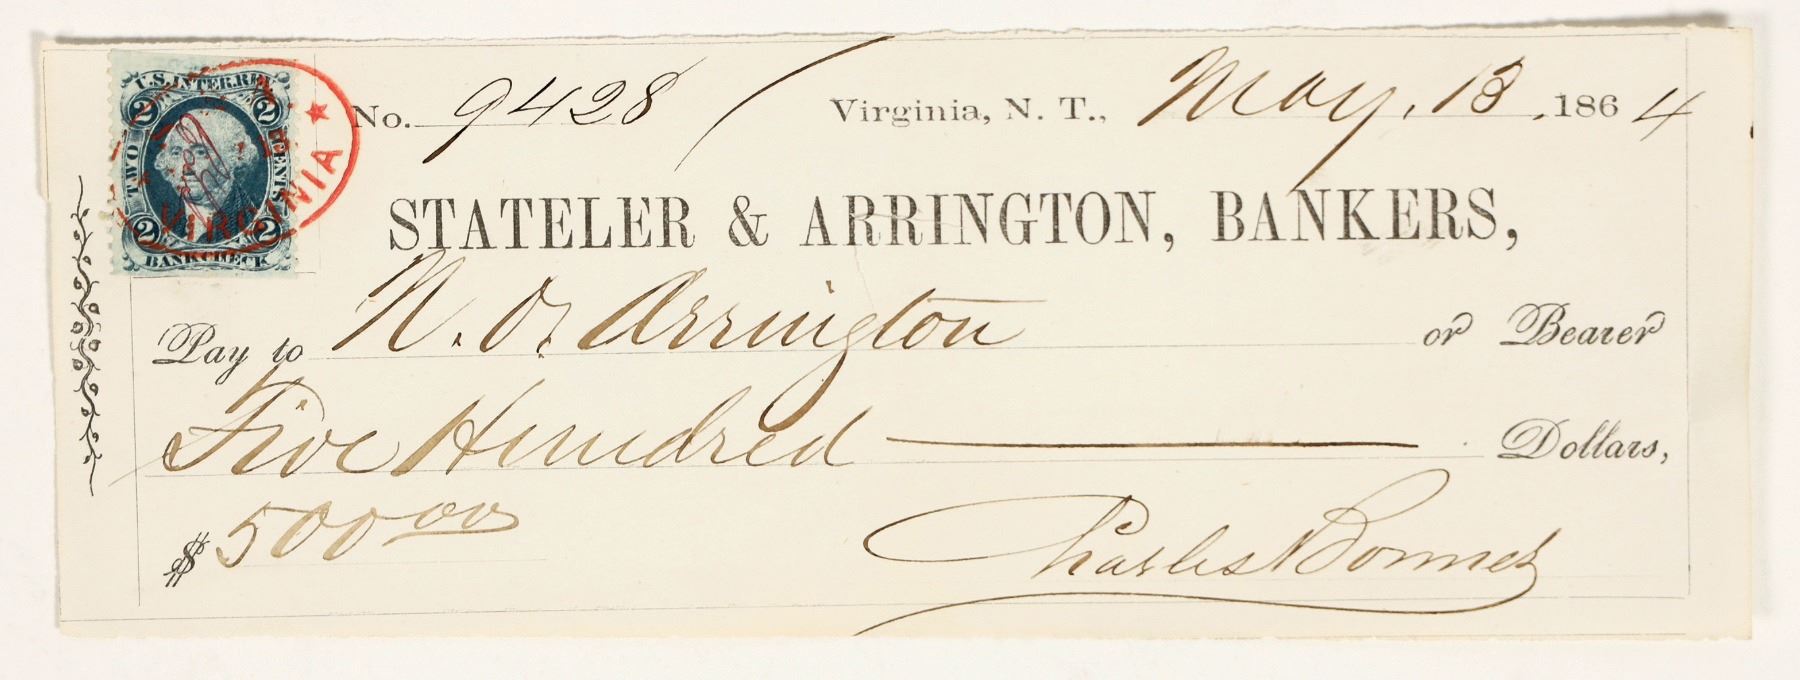 U.S. INTER. REV.
2 2
TWO CENTS
2 2
BANK CHECK
VIRGINIA
No. 9428 Virginia, N. T., May. 13 .1864
STATELER & ARRINGTON, BANKERS,
Pay to N. O. Arrington or Bearer
Five Hundred Dollars,
$ 500 00
Charles Bonner